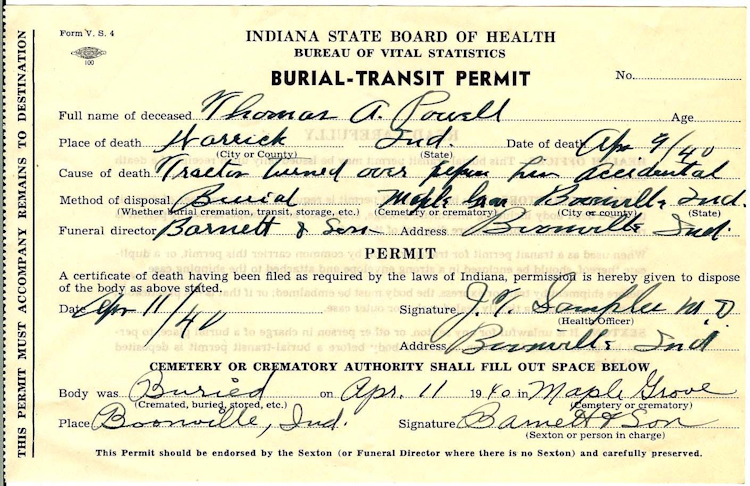 THIS PERMIT MUST ACCOMPANY REMAINS TO DESTINATION
Form V. S. 4
100
INDIANA STATE BOARD OF HEALTH
BUREAU OF VITAL STATISTICS
BURIAL-TRANSIT PERMIT
No.
Full name of deceased Thomas A. Powell Age
Place of death Warrick Ind. Date of death Apr 9/40
(City or County) (State)
Cause of death Tractor turned over him accidental
Method of disposal Burial Maple Boonville Ind.
(Whether burial cremation, transit, storage, etc.) (Cemetery or crematory) (City or county) (State)
Funeral director Barnett & Son Address Boonville Ind.
PERMIT
A certificate of death having been filed as required by the laws of Indiana, permission is hereby given to dispose
of the body as above stated.
Date Apr 11/40 Signature J. M. D
(Health Officer)
Address Boonville Ind
CEMETERY OR CREMATORY AUTHORITY SHALL FILL OUT SPACE BELOW
Body was Buried on Apr. 11 1940 in Maple Grove
(Cremated, buried, stored, etc.) (Cemetery or crematory)
Place Boonville, Ind. Signature Barnett & Son
(Sexton or person in charge)
This Permit should be endorsed by the Sexton (or Funeral Director where there is no Sexton) and carefully preserved.